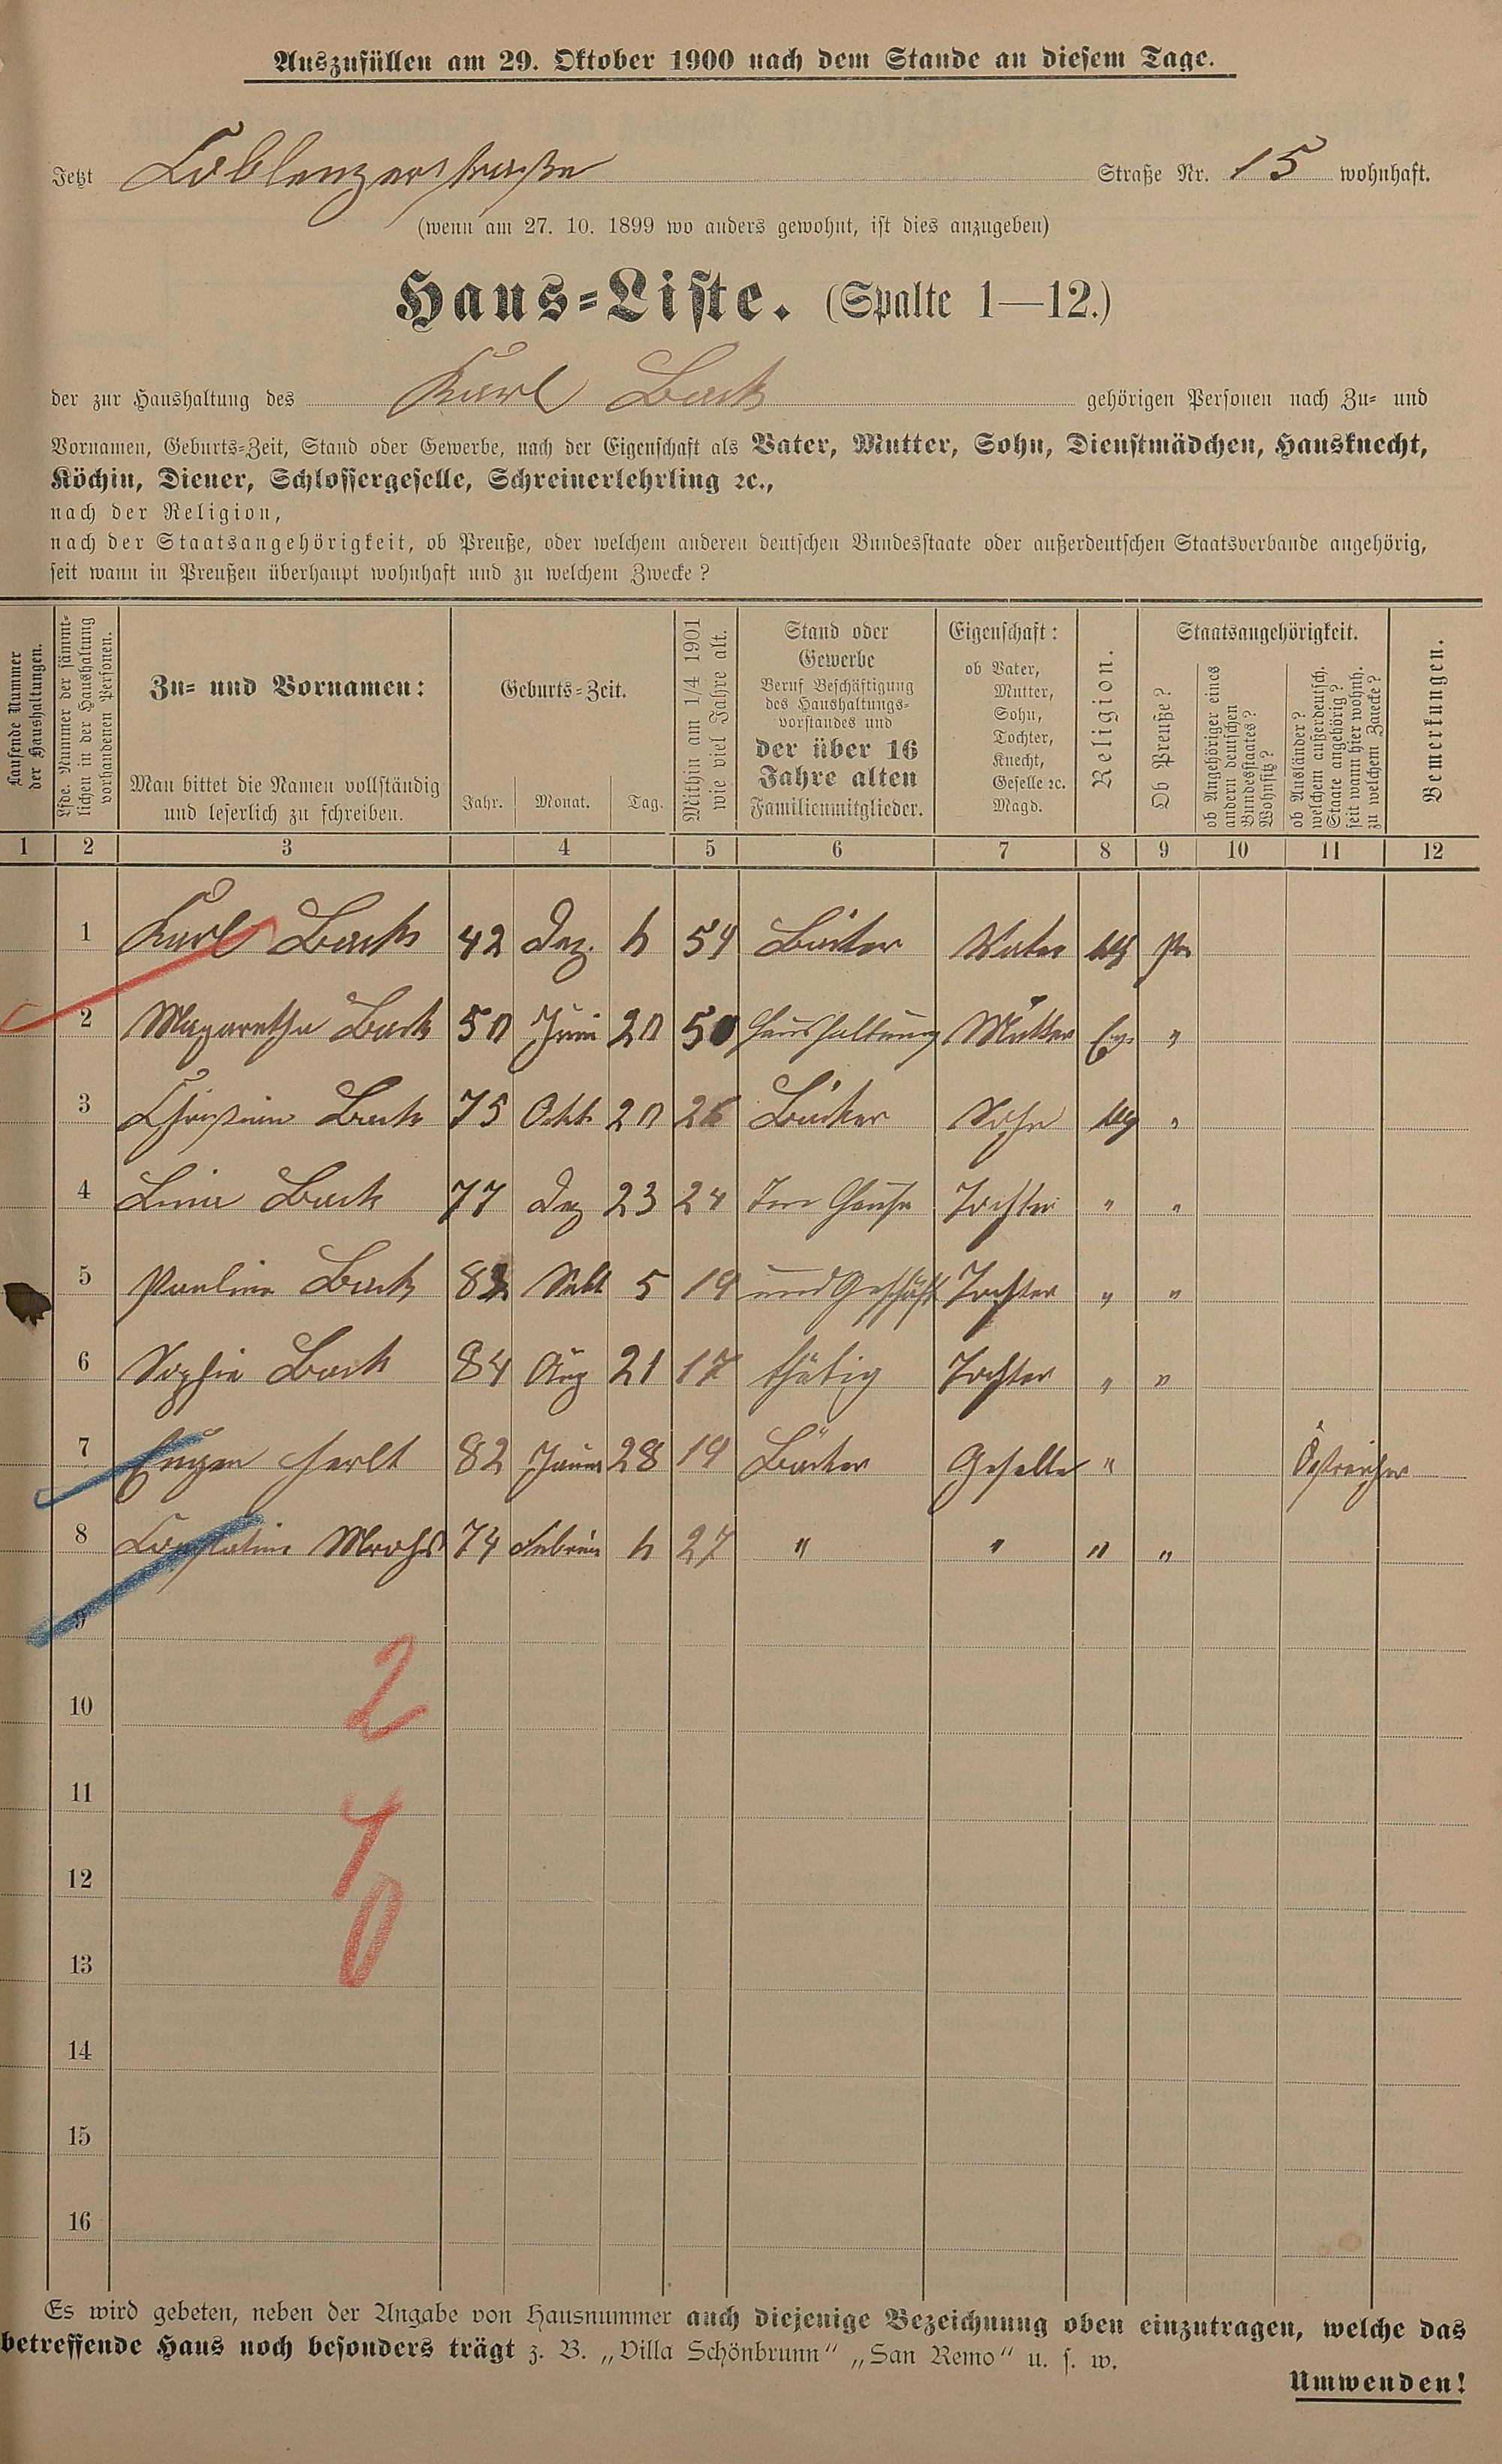 Auszufüllen am 29. Oktober 1900 nach dem Stande an diesem Tage.
Jetzt Coblenzerstraße Straße Nr. 15 wohnhaft.
(wenn am 27. 10. 1899 wo anders gewohnt, ist dies anzugeben)
Haus-Liste. (Spalte 1—12.)
der zur Haushaltung des Karl Back gehörigen Personen nach Zu- und
Vornamen, Geburts-Zeit, Stand oder Gewerbe, nach der Eigenschaft als Vater, Mutter, Sohn, Dienstmädchen, Hausknecht,
Köchin, Diener, Schlossergeselle, Schreinerlehrling ꝛc.,
nach der Religion,
nach der Staatsangehörigkeit, ob Preuße, oder welchem anderen deutschen Bundesstaate oder außerdeutschen Staatsverbande angehörig,
seit wann in Preußen überhaupt wohnhaft und zu welchem Zwecke?
Laufende Nummer
der Haushaltungen.
Lfde. Nummer der sämmt-
lichen in der Haushaltung
vorhandenen Personen.
Zu- und Vornamen:
Man bittet die Namen vollständig
und leserlich zu schreiben.
Geburts-Zeit.
Jahr. Monat. Tag.
Mithin am 1/4 1901
wie viel Jahre alt.
Stand oder
Gewerbe
Beruf Beschäftigung
des Haushaltungs-
vorstandes und
der über 16
Jahre alten
Familienmitglieder.
Eigenschaft:
ob Vater,
Mutter,
Sohn,
Tochter,
Knecht,
Geselle ꝛc.
Magd.
Religion.
Staatsangehörigkeit.
Ob Preuße?
ob Angehöriger eines
andern deutschen
Bundesstaates?
Wohnsitz?
ob Ausländer?
welchem außerdeutsch.
Staate angehörig?
seit wann hier wohnh.
zu welchem Zwecke?
Bemerkungen.
1 2 3 4 5 6 7 8 9 10 11 12
1 Karl Back 42 Dez. Bäcker Vater Pr
2 Magaretha Back 50 Juni 20 50 Haushaltung Mutter Ev. "
3 Christian Back 75 Okt. 20 26 Bäcker Sohn "
4 Lina Back 77 Dez 23 24 Im Hause Tochter " "
5 Pauline Back 82 5 19 und Geschäft Tochter " "
6 Sophie Back 84 Aug 21 17 thätig Tochter " "
7 Eugen 82 Januar 28 19 Bäcker Geselle " Östreicher
8 74 Februar 27 " " " "
9
2
10
11
4
12
0
13
14
15
16
Es wird gebeten, neben der Angabe von Hausnummer auch diejenige Bezeichnung oben einzutragen, welche das
betreffende Haus noch besonders trägt z. B. „Villa Schönbrunn" „San Remo" u. s. w.
Umwenden!